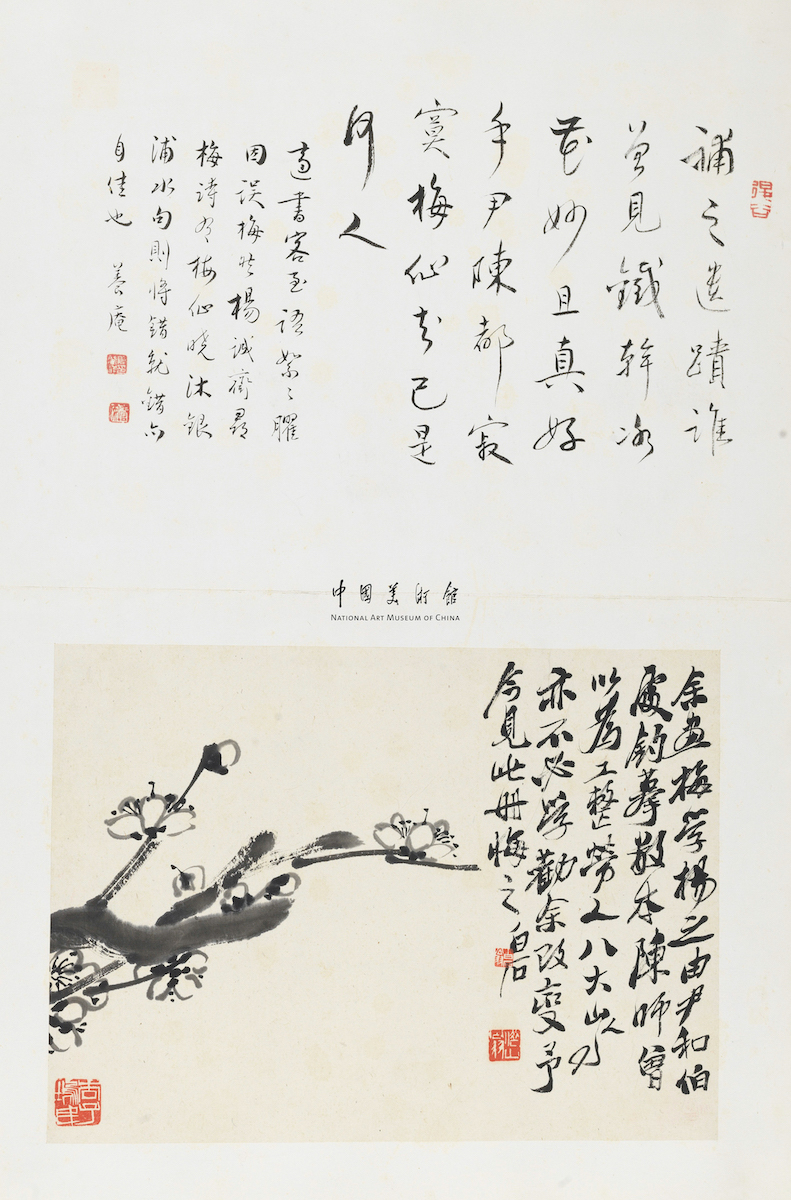 補之遺蹟誰
曾見鐵幹冰
花妙且真好
手尹陳都寂
寞梅仙知已是
何人
適書客至語絮〻
因誤梅花楊誠齋尋
梅詩有梅仙曉沐銀
浦水句則將錯就錯亦
自佳也 養庵
中國美術館
NATIONAL ART MUSEUM OF CHINA
余画梅学楊之由尹和伯
處鈎摹數本陳師曾
以為工整勞人八大山人
亦不必学勸余改變予
今見此冊悔之 白石